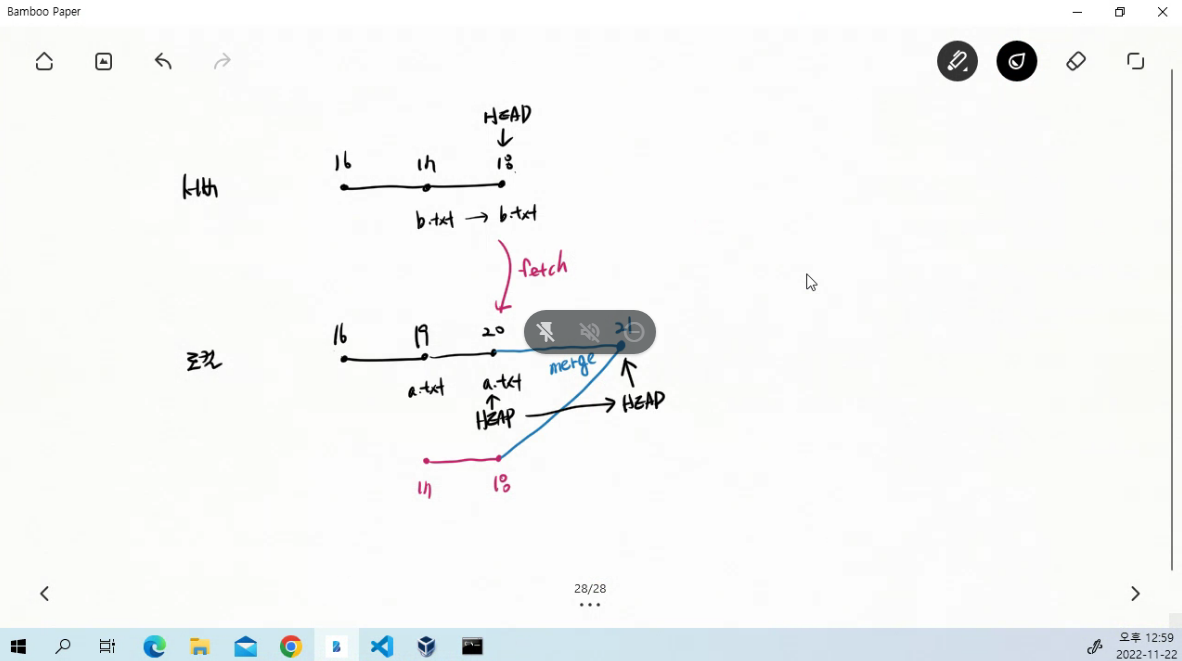 Bamboo Paper
HEAD
16 17 18
서버
b.txt → b.txt
fetch
16 19 20 21
로컬
merge
a.txt a.txt
HEAD → HEAD
17 18
28/28
오후 12:59
2022-11-22